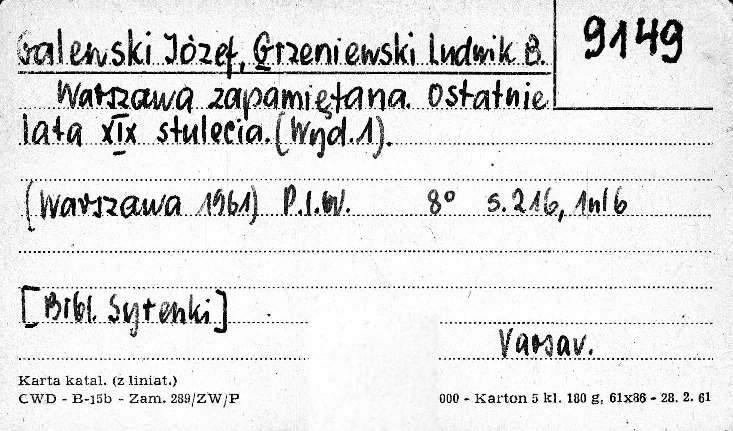 Galewski Józef, Grzeniewski Ludwik B.
9149
Warszawa zapamiętana. Ostatnie
lata XIX stulecia. (Wyd. 1).
(Warszawa 1961) P.I.W. 8° s. 216, 1nl 6
[Bibl. Syrenki]
Varsav.
Karta katal. (z liniat.)
CWD - B-15b - Zam. 289/ZW/P
000 - Karton 5 kl. 180 g, 61x86 - 28. 2. 61